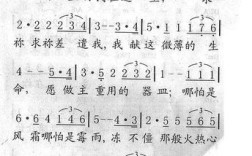 2·2 2 2 3 4 | 3--3·4 | 5·1 1 1 7 6
祢求祢差遣我,我献这微薄的生
4--5·4 | 3·5 2 2 3 2 | 1--1 1 1
命,愿做主重用的器皿;哪怕是
6·6 4 1 4 6 | 5--5·4 | 3·3 3 2 3 4
风霜哪怕是霉雨,冻不僵那般火热心